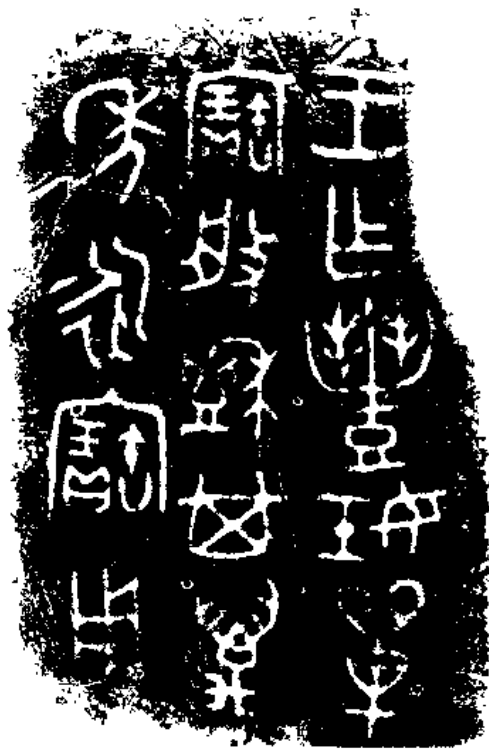 王乍豐妊單
寶般盉其萬
年永寶用